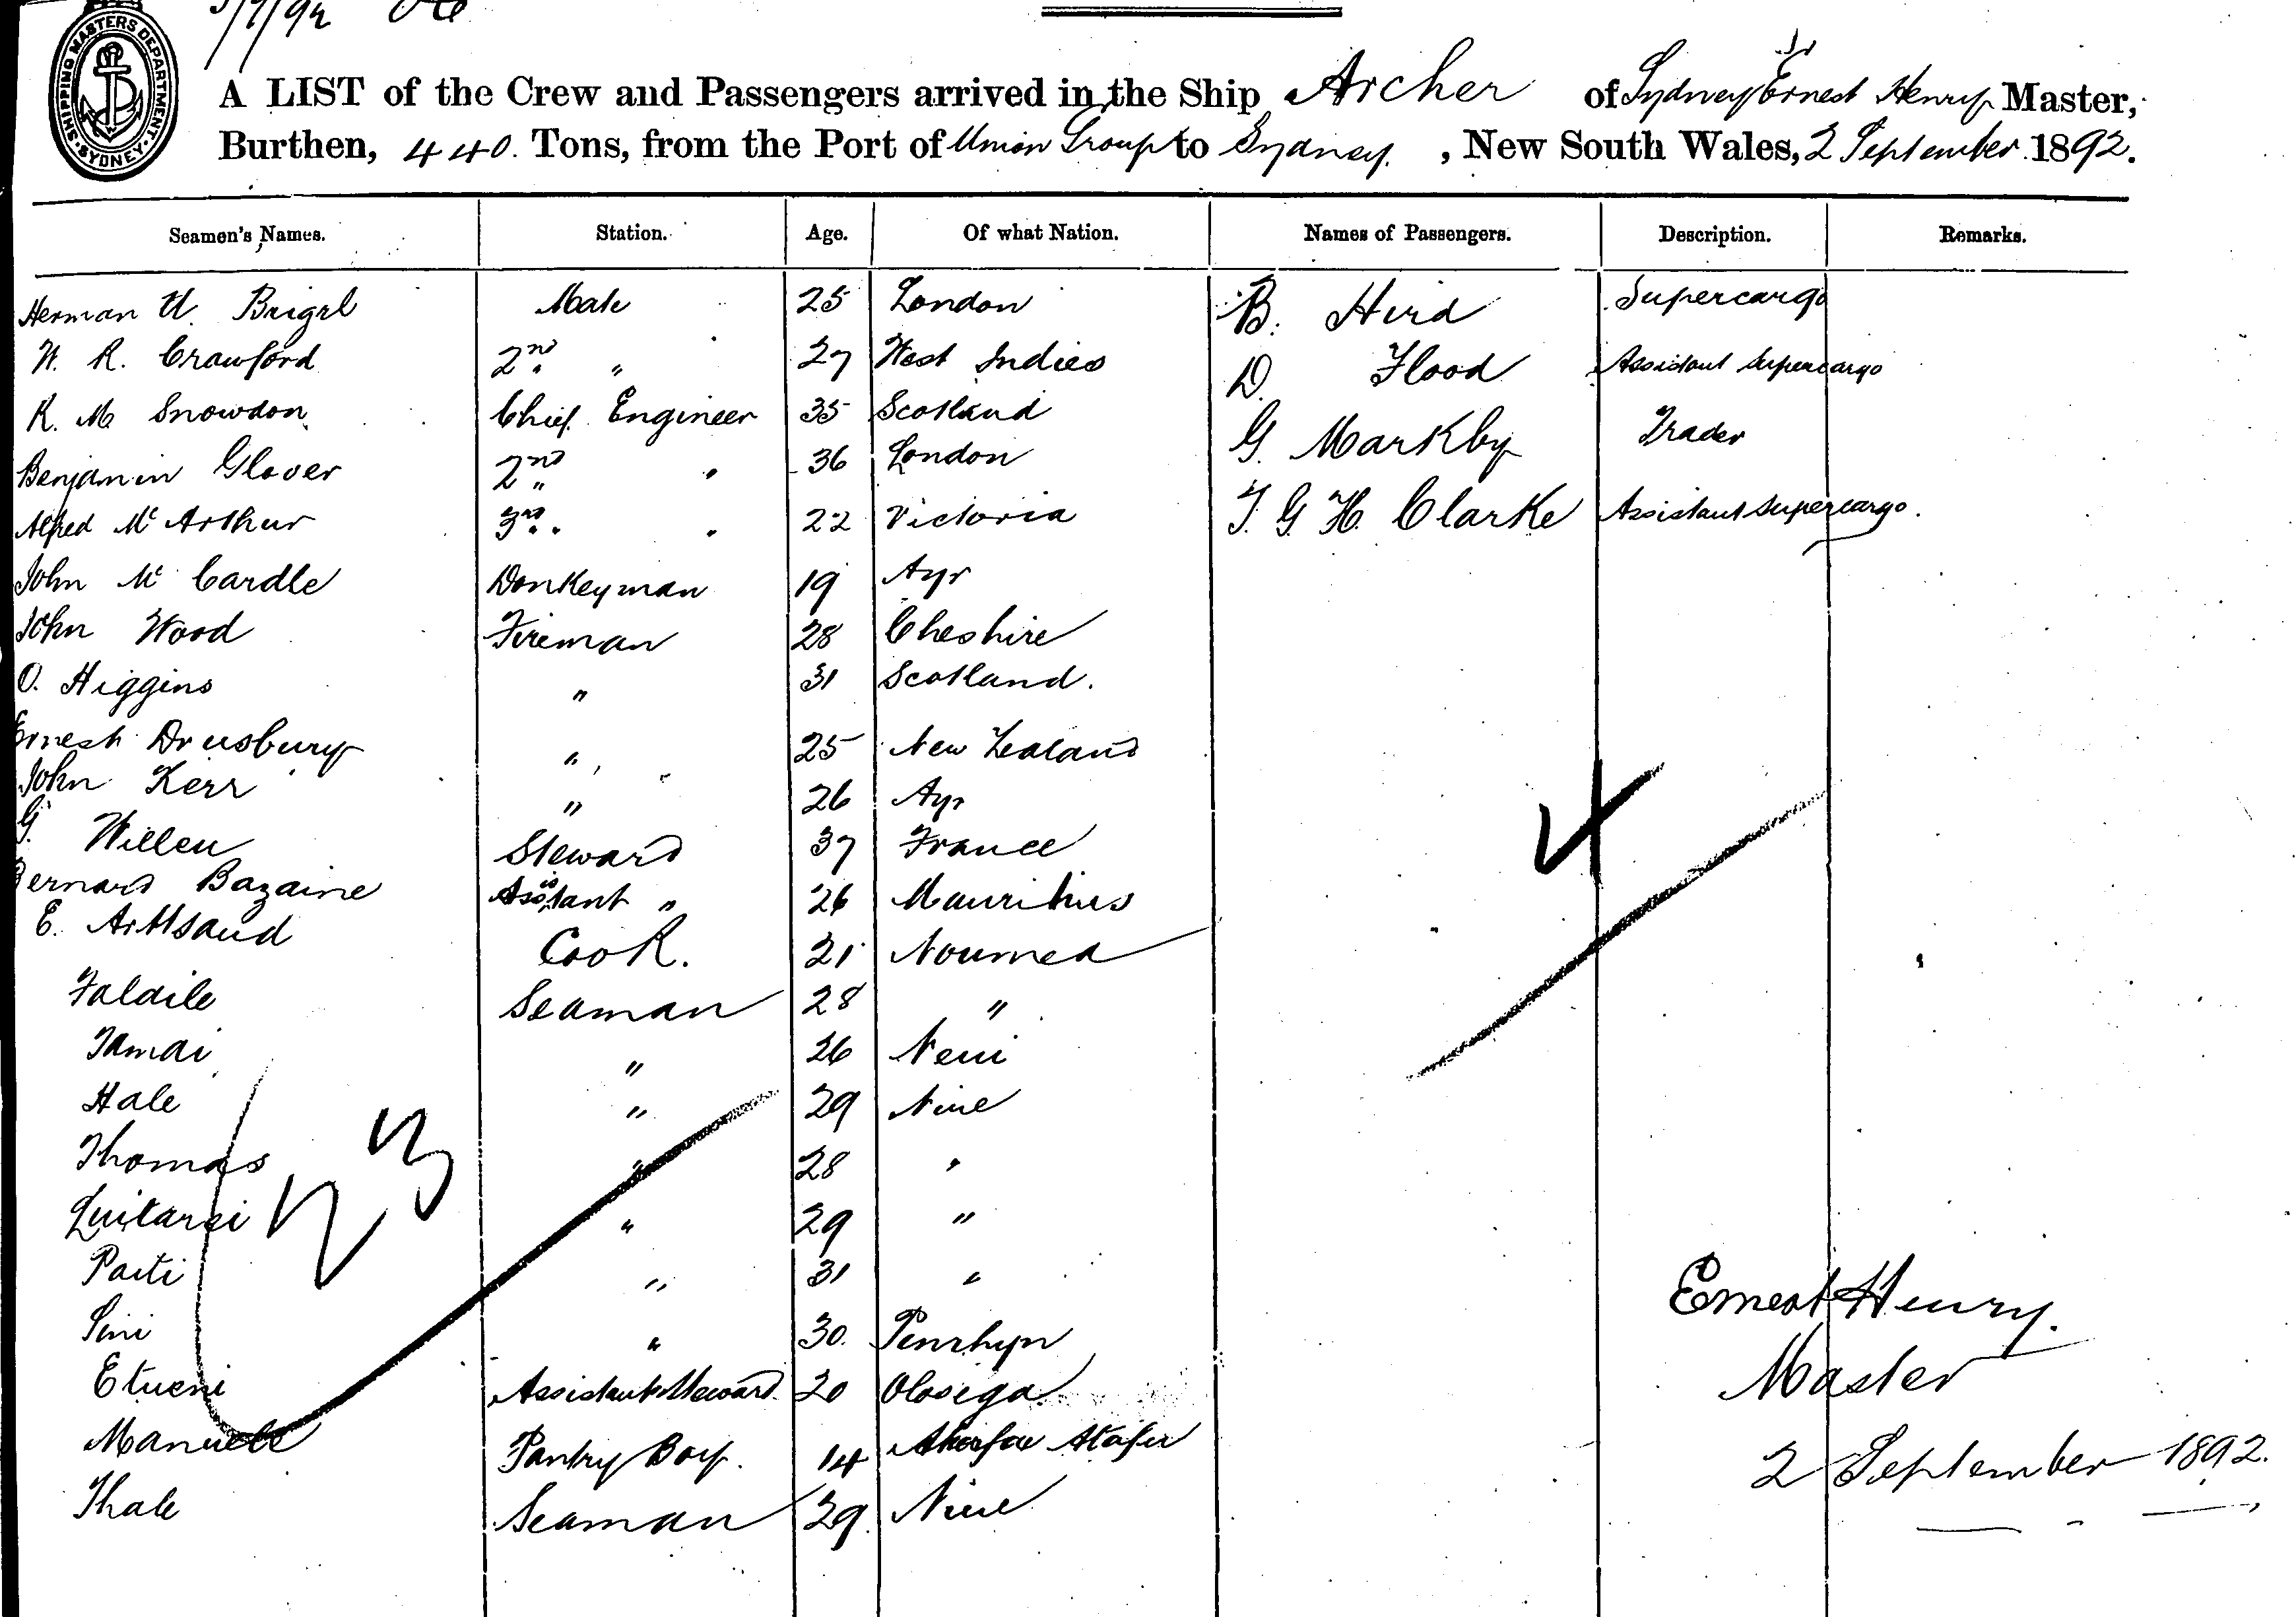 5/9/92
SHIPPING MASTERS DEPARTMENT
SYDNEY
A LIST of the Crew and Passengers arrived in the Ship Archer of Sydney Ernest Henry Master,
Burthen, 440. Tons, from the Port of Union Group to Sydney. , New South Wales, 2 September 1892.
Seamen's Names. Station. Age. Of what Nation. Names of Passengers. Description. Remarks.
Herman Mate 25 London B. Hird Supercargo
W. R. Crawford 2nd " 27 West Indies D. Flood Assistant Supercargo
R. M Snowdon Chief Engineer 35 Scotland G. Markby Trader
Benjamin Glover 2nd " 36 London
Alfred Mc Arthur 3rd " 22 Victoria T. G. H. Clarke Assistant Supercargo.
John Mc Cardle Donkeyman 19 Ayr
John Wood Fireman 28 Cheshire
O. Higgins " 31 Scotland.
Ernest Drusbury " 25 New Zealand
John Kerr " 26 Ayr
G. Willen Steward 37 France
Bernard Bazaine Assistant " 26 Mauritius
E. Cook. 21 Noumea
Falaile Seaman 28 "
Tamai " 26 Neui
Hale " 29 Niue
Thomas " 28 "
" 29 "
Paiti " 31 "
Simi " 30. Penrhyn
Etueni Assistant Steward 20 Olosega
Manuele Pantry Boy. 14 Atafu
Thale Seaman 29 Niue
23
4
Ernest Henry.
Master
2 September 1892.